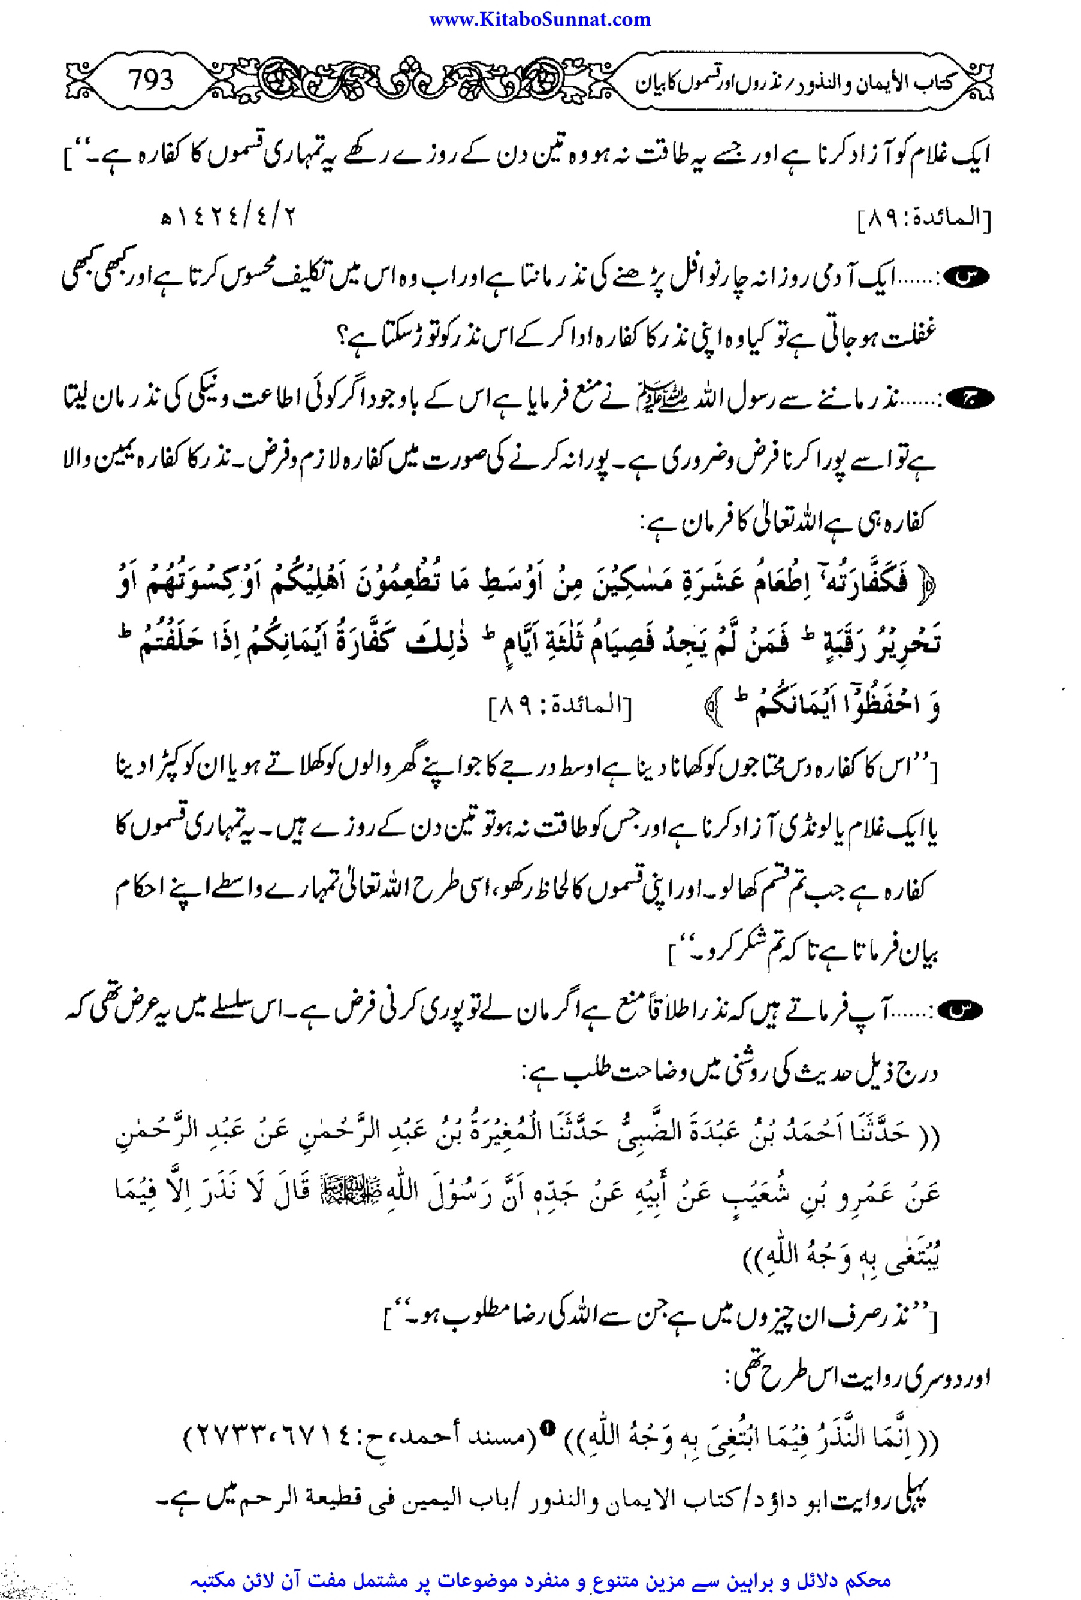 www.KitaboSunnat.com
كتاب الأيمان والنذور / نذروں اور قسموں کا بیان 793
ایک غلام کو آزاد کرنا ہے اور جسے یہ طاقت نہ ہو وہ تین دن کے روزے رکھے یہ تمہاری قسموں کا کفارہ ہے۔‘‘]
[المائدة: ٨٩] ٢/٤/١٤٢٤ھ
س:......ایک آدمی روزانہ چار نوافل پڑھنے کی نذر مانتا ہے اور اب وہ اس میں تکلیف محسوس کرتا ہے اور کبھی کبھی
غفلت ہو جاتی ہے تو کیا وہ اپنی نذر کا کفارہ ادا کر کے اس نذر کو توڑ سکتا ہے؟
ج:......نذر ماننے سے رسول اللہ ﷺ نے منع فرمایا ہے اس کے باوجود اگر کوئی اطاعت و نیکی کی نذر مان لیتا
ہے تو اسے پورا کرنا فرض و ضروری ہے۔ پورا نہ کرنے کی صورت میں کفارہ لازم و فرض۔ نذر کا کفارہ یمین والا
کفارہ ہی ہے اللہ تعالیٰ کا فرمان ہے:
﴿ فَكَفَّارَتُهٗٓ اِطْعَامُ عَشَرَةِ مَسٰكِيْنَ مِنْ اَوْسَطِ مَا تُطْعِمُوْنَ اَهْلِيْكُمْ اَوْ كِسْوَتُهُمْ اَوْ
تَحْرِيْرُ رَقَبَةٍ ؕ فَمَنْ لَّمْ يَجِدْ فَصِيَامُ ثَلٰثَةِ اَيَّامٍ ؕ ذٰلِكَ كَفَّارَةُ اَيْمَانِكُمْ اِذَا حَلَفْتُمْ ؕ
وَ احْفَظُوْٓا اَيْمَانَكُمْ ؕ ﴾ [المائدة: ٨٩]
[’’اس کا کفارہ دس محتاجوں کو کھانا دینا ہے اوسط درجے کا جو اپنے گھر والوں کو کھلاتے ہو یا ان کو کپڑا دینا
یا ایک غلام یا لونڈی آزاد کرنا ہے اور جس کو طاقت نہ ہو تو تین دن کے روزے ہیں۔ یہ تمہاری قسموں کا
کفارہ ہے جب تم قسم کھا لو۔ اور اپنی قسموں کا لحاظ رکھو، اسی طرح اللہ تعالیٰ تمہارے واسطے اپنے احکام
بیان فرماتا ہے تاکہ تم شکر کرو۔‘‘]
س:......آپ فرماتے ہیں کہ نذر اطلاقاً منع ہے اگر مان لے تو پوری کرنی فرض ہے۔ اس سلسلے میں یہ عرض تھی کہ
درج ذیل حدیث کی روشنی میں وضاحت طلب ہے:
(( حَدَّثَنَا اَحْمَدُ بْنُ عَبْدَةَ الضَّبِيُّ حَدَّثَنَا الْمُغِيْرَةُ بْنُ عَبْدِ الرَّحْمٰنِ عَنْ عَبْدِ الرَّحْمٰنِ
عَنْ عَمْرِو بْنِ شُعَيْبٍ عَنْ أَبِيْهِ عَنْ جَدِّهٖ اَنَّ رَسُوْلَ اللهِ ﷺ قَالَ لَا نَذَرَ اِلاَّ فِيْمَا
يُبْتَغٰى بِهٖ وَجْهُ اللهِ))
[’’نذر صرف ان چیزوں میں ہے جن سے اللہ کی رضا مطلوب ہو۔‘‘]
اور دوسری روایت اس طرح تھی:
(( اِنَّمَا النَّذَرُ فِيْمَا ابْتُغِيَ بِهٖ وَجْهُ اللهِ)) ❶ (مسند أحمد، ح: ٦٧١٤، ٢٧٣٣)
پہلی روایت ابو داؤد/ كتاب الايمان والنذور / باب اليمين فى قطيعة الرحم میں ہے۔
محکم دلائل و براہین سے مزین متنوع و منفرد موضوعات پر مشتمل مفت آن لائن مکتبہ